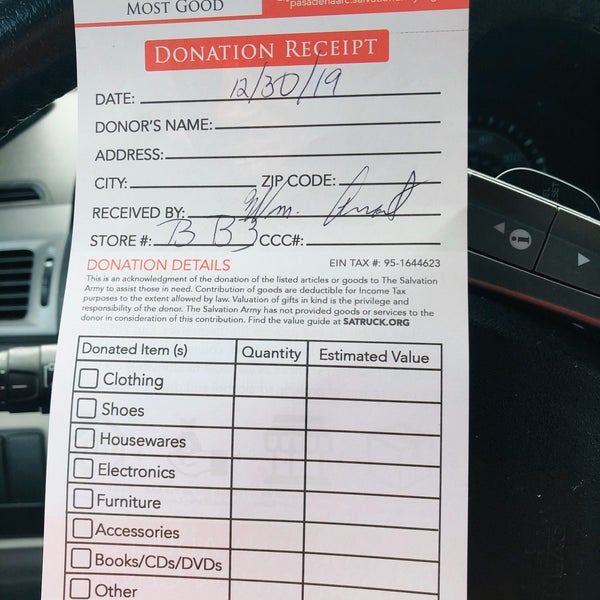 MOST GOOD
DONATION RECEIPT
DATE: 12/30/19
DONOR'S NAME:
ADDRESS:
CITY: ZIP CODE:
RECEIVED BY: Wm.
STORE #: B B3 CCC#:
DONATION DETAILS EIN TAX #: 95-1644623
This is an acknowledgment of the donation of the listed articles or goods to The Salvation
Army to assist those in need. Contribution of goods are deductible for Income Tax
purposes to the extent allowed by law. Valuation of gifts in kind is the privilege and
responsibility of the donor. The Salvation Army has not provided goods or services to the
donor in consideration of this contribution. Find the value guide at SATRUCK.ORG
Donated Item (s) Quantity Estimated Value
Clothing
Shoes
Housewares
Electronics
Furniture
Accessories
Books/CDs/DVDs
Other